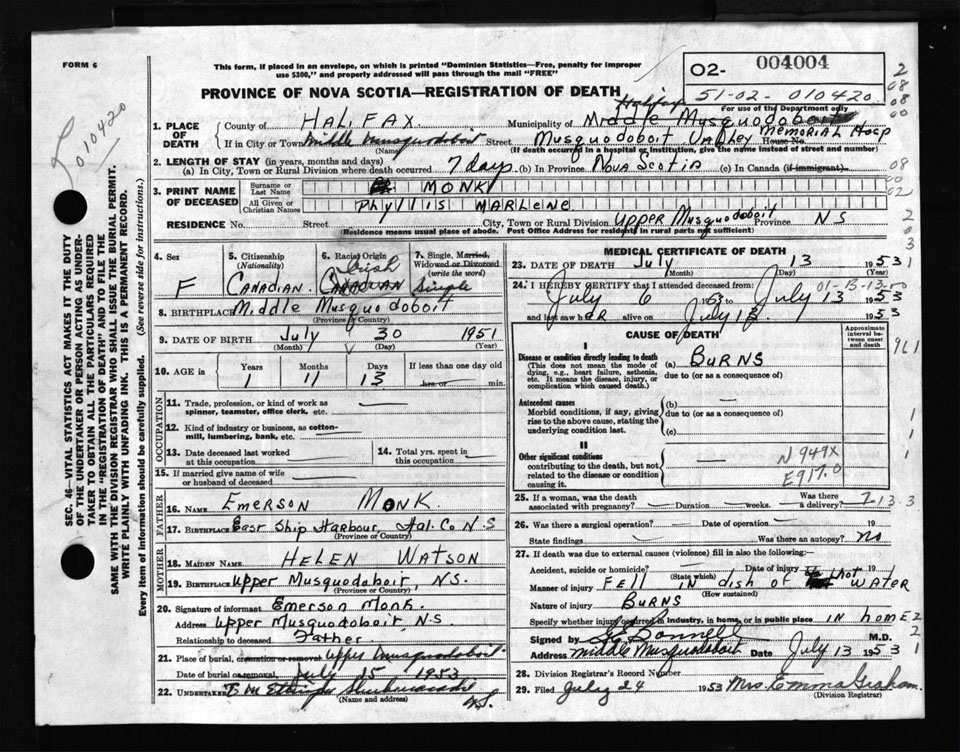 FORM 6
This form, if placed in an envelope, on which is printed "Dominion Statistics—Free, penalty for improper
use $300," and properly addressed will pass through the mail "FREE"
PROVINCE OF NOVA SCOTIA—REGISTRATION OF DEATH
O2- 004004
51-02- 010420
For use of the Department only
010420
SEC. 46—VITAL STATISTICS ACT MAKES IT THE DUTY
OF THE UNDERTAKER OR PERSON ACTING AS UNDER-
TAKER TO OBTAIN ALL THE PARTICULARS REQUIRED
IN THE "REGISTRATION OF DEATH" AND TO FILE THE
SAME WITH THE DIVISION REGISTRAR WHO SHALL ISSUE THE BURIAL PERMIT.
WRITE PLAINLY WITH UNFADING INK. THIS IS A PERMANENT RECORD.
Every item of information should be carefully supplied. (See reverse side for instructions.)
1. PLACE OF DEATH County of HALIFAX Municipality of Halifax Middle Musquodoboit
If in City or Town Middle Musquodoboit (Name) Street Musquodoboit Valley Memorial Hosp House No.
(If death occurred in a hospital or institution, give the name instead of street and number)
2. LENGTH OF STAY (in years, months and days)
(a) In City, Town or Rural Division where death occurred 7 days (b) In Province Nova Scotia (c) In Canada (if immigrant)
3. PRINT NAME OF DECEASED Surname or Last Name MONK
All Given or Christian Names Phyllis MARLENE
RESIDENCE No. Street City, Town or Rural Division Upper Musquodoboit Province NS
(Residence means usual place of abode. Post Office Address for residents in rural parts not sufficient)
4. Sex F
5. Citizenship (Nationality) Canadian.
6. Racial Origin Irish Canadian
7. Single, Married, Widowed or Divorced (write the word) Single
8. BIRTHPLACE Middle Musquodoboit
(Province or Country)
9. DATE OF BIRTH July 30 1951
(Month) (Day) (Year)
10. AGE in Years 1 Months 11 Days 13 If less than one day old hrs. or min.
OCCUPATION
11. Trade, profession, or kind of work as
spinner, teamster, office clerk, etc.
12. Kind of industry or business, as cotton-
mill, lumbering, bank, etc.
13. Date deceased last worked
at this occupation
14. Total yrs. spent in
this occupation
15. If married give name of wife
or husband of deceased
FATHER
16. Name Emerson Monk
17. Birthplace East Ship Harbour, Hal. Co N S
(Province or Country)
MOTHER
18. Maiden Name HELEN WATSON
19. Birthplace Upper Musquodoboit, NS.
(Province or Country)
20. Signature of informant Emerson Monk.
Address Upper Musquodoboit, N.S.
Relationship to deceased Father
21. Place of burial, cremation or removal Upper Musquodoboit
Date of burial or removal, July 15 1953
22. UNDERTAKER
(Name and address)
N.S.
MEDICAL CERTIFICATE OF DEATH
23. DATE OF DEATH July 13 1953
(Month) (Day) (Year)
01-13-13-
24. I HEREBY CERTIFY that I attended deceased from:
July 6 1953 to July 13 1953
and last saw her alive on July 13 1953
CAUSE OF DEATH
Approximate interval between onset and death
I
Disease or condition directly leading to death
(This does not mean the mode of
dying, e.g., heart failure, asthenia,
etc. It means the disease, injury, or
complication which caused death.)
(a) BURNS
due to (or as a consequence of)
Antecedent causes
Morbid conditions, if any, giving
rise to the above cause, stating the
underlying condition last.
(b) —
due to (or as a consequence of)
(c)
II
Other significant conditions
contributing to the death, but not
related to the disease or condition
causing it.
N 949X
E917.0
25. If a woman, was the death
associated with pregnancy? Duration weeks. Was there a delivery?
26. Was there a surgical operation? — Date of operation — 19
State findings Was there an autopsy? no
27. If death was due to external causes (violence) fill in also the following:—
Accident, suicide or homicide? (State which) Date of injury 19
Manner of injury Fell in dish of hot water
(How sustained)
Nature of injury BURNS
Specify whether injury occurred in Industry, in home, or in public place IN home
Signed by M.D.
Address Middle Musquodoboit Date July 13 1953
28. Division Registrar's Record Number
29. Filed July 24 1953 Mrs. Emma Graham.
(Division Registrar)